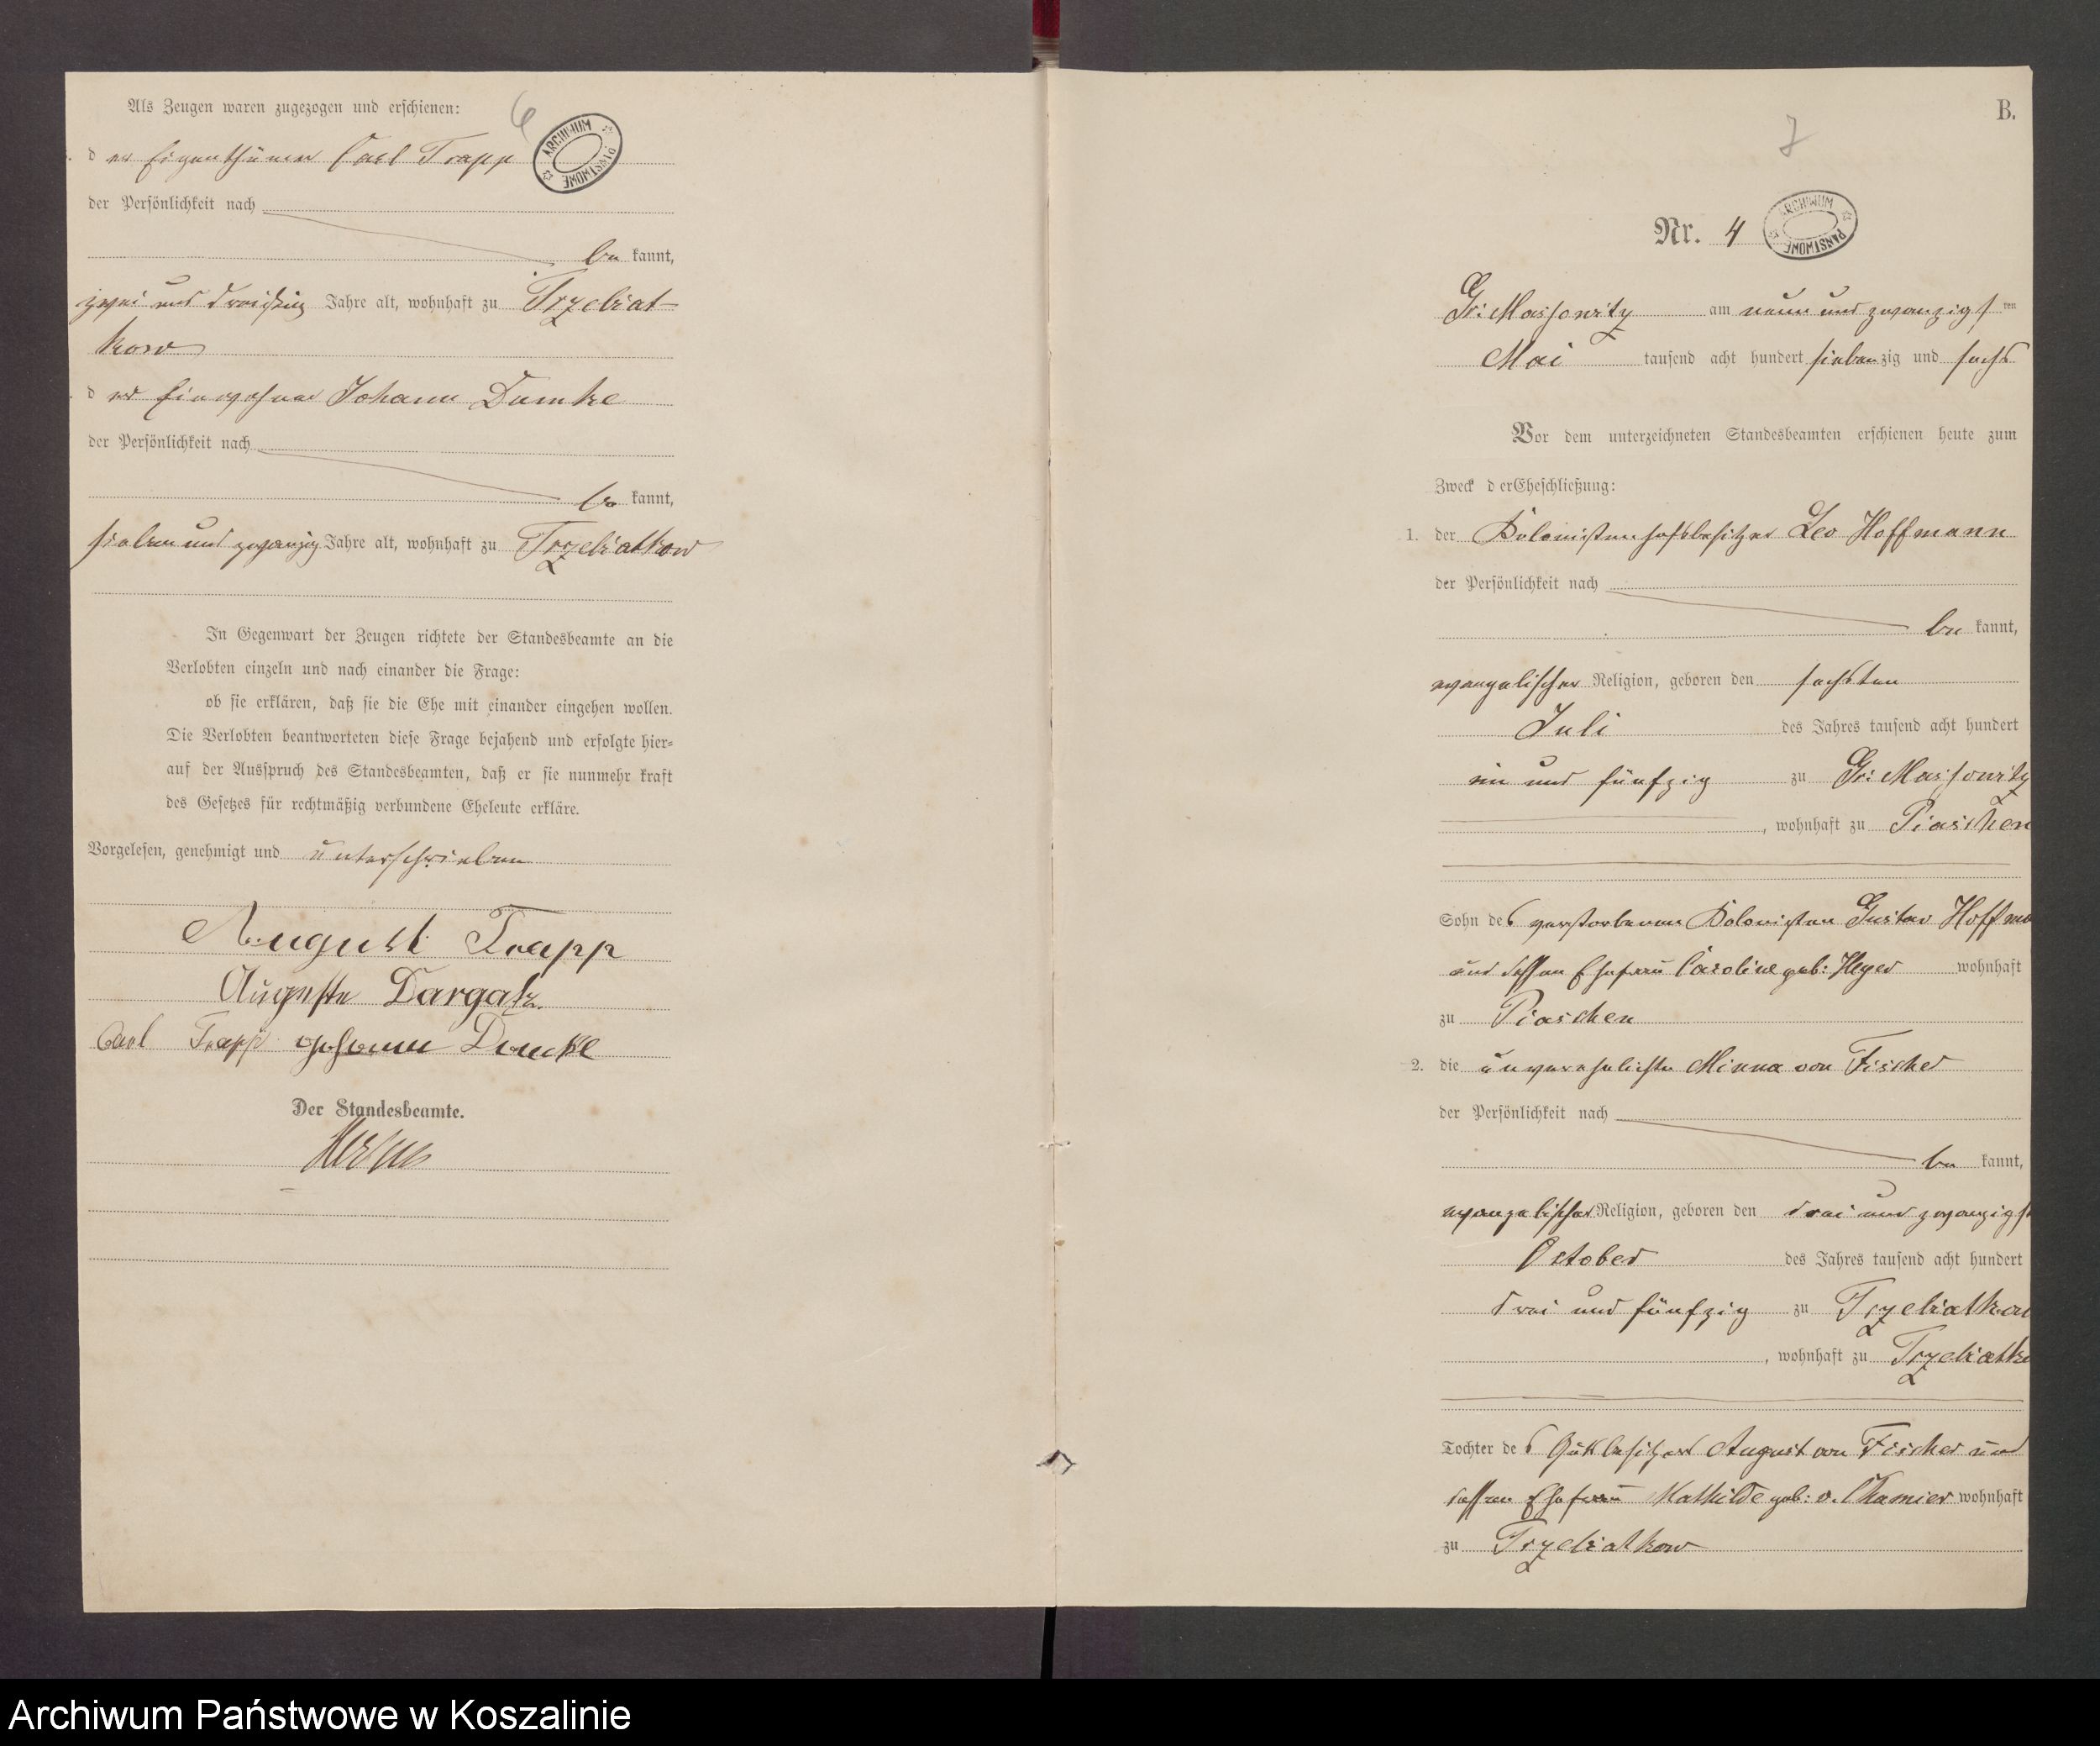 Als Zeugen waren zugezogen und erschienen:
6
der Eigenthümer Carl Trapp
ARCHIWUM PAŃSTWOWE
der Persönlichkeit nach
be kannt,
zwei und dreißig Jahre alt, wohnhaft zu Trzebiat-
kow
der Einwohner Johann Dumke
der Persönlichkeit nach
be kannt,
sieben und zwanzig Jahre alt, wohnhaft zu Trzebiatkow
In Gegenwart der Zeugen richtete der Standesbeamte an die
Verlobten einzeln und nach einander die Frage:
ob sie erklären, daß sie die Ehe mit einander eingehen wollen.
Die Verlobten beantworteten diese Frage bejahend und erfolgte hier=
auf der Ausspruch des Standesbeamten, daß er sie nunmehr kraft
des Gesetzes für rechtmäßig verbundene Eheleute erkläre.
Vorgelesen, genehmigt und unterschrieben
August Trapp
Auguste Dargatz.
Carl Trapp Johann Dumke
Der Standesbeamte.
B.
7
Nr. 4
ARCHIWUM PAŃSTWOWE
Gr: Massowitz am neun und zwanzigsten
Mai tausend acht hundert siebenzig und sechs
Vor dem unterzeichneten Standesbeamten erschienen heute zum
Zweck der Eheschließung:
1. der Kolonistenhofsbesitzer Leo Hoffmann
der Persönlichkeit nach
be kannt,
evangelischer Religion, geboren den sechsten
Juli des Jahres tausend acht hundert
ein und fünfzig zu Gr: Massowitz
, wohnhaft zu Piaschen
Sohn des verstorbenen Kolonisten Gustav Hoffma
und dessen Ehefrau Caroline geb: Heyer wohnhaft
zu Piaschen
2. die unverehelichte Minna von Fischer
der Persönlichkeit nach
be kannt,
evangelischer Religion, geboren den drei und zwanzigst
October des Jahres tausend acht hundert
drei und fünfzig zu Trzebiatkow
, wohnhaft zu Trzebiatko
Tochter des Gutsbesitzers August von Fischer und
dessen Ehefrau Mathilde geb: v. Chamier wohnhaft
zu Trzebiatkow
Archiwum Państwowe w Koszalinie